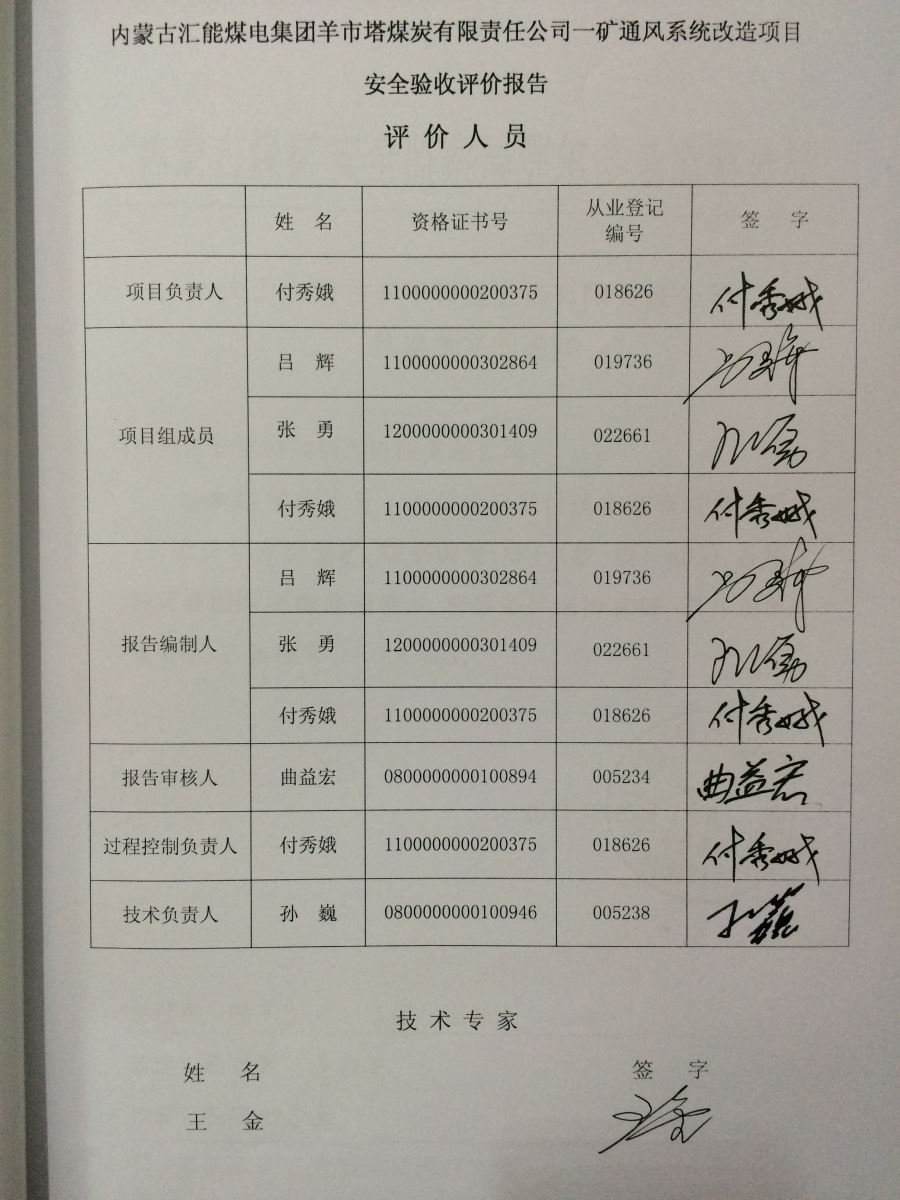 内蒙古汇能煤电集团羊市塔煤炭有限责任公司一矿通风系统改造项目
安全验收评价报告
评价人员
姓 名 资格证书号 从业登记编号 签 字
项目负责人 付秀娥 1100000000200375 018626 付秀娥
项目组成员 吕 辉 1100000000302864 019736 吕辉
张 勇 1200000000301409 022661 张勇
付秀娥 1100000000200375 018626 付秀娥
报告编制人 吕 辉 1100000000302864 019736 吕辉
张 勇 1200000000301409 022661 张勇
付秀娥 1100000000200375 018626 付秀娥
报告审核人 曲益宏 0800000000100894 005234 曲益宏
过程控制负责人 付秀娥 1100000000200375 018626 付秀娥
技术负责人 孙 巍 0800000000100946 005238 孙巍
技术专家
姓 名 签 字
王 金 王金